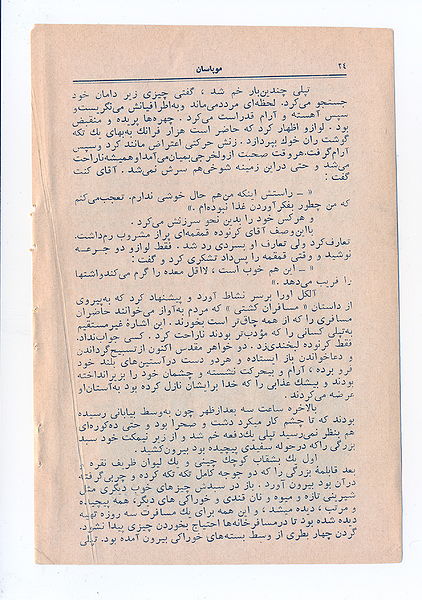 ۲۴
موپاسان
تپلی چندین‌بار خم شد ، گفتی چیزی زیر دامان خود
جستجو می‌کرد. لحظه‌ای مردد می‌ماند و به‌اطرافیانش می‌نگریست و
سپس آهسته و آرام قدراست می‌کرد . چهره‌ها پریده و منقبض
بود . لوازو اظهار کرد که حاضر است هزار فرانک به‌بهای یک تکه
گوشت ران خوک بپردازد . زنش حرکتی اعتراض مانند کرد و سپس
آرام گرفت، هر وقت صحبت از ولخرجی بمیان می‌آمد او همیشه ناراحت
می‌شد و حتی دراین زمینه شوخی‌هم سرش نمی‌شد. آقای کنت
گفت :
« – راستش اینکه من‌هم حال خوشی ندارم. تعجب می‌کنم
که من چطور بفکر آوردن غذا نبوده‌ام . »
و هرکس خود را بدین نحو سرزنش می‌کرد .
بااین‌وصف آقای کرنوده قمقمه‌ای پراز مشروب رم‌داشت.
تعارف‌کرد ولی تعارف او بسردی رد شد . فقط لوازو دو جرعه
نوشید و وقتی قمقمه را پس‌داد تشکری کرد و گفت :
« – این هم خوب است ، لااقل معده را گرم می‌کند و اشتها
را فریب می‌دهد .»
الکل اورا برسر نشاط آورد و پیشنهاد کرد که به‌پیروی
از داستان « مسافران کشتی » که مردم به‌آواز می‌خوانند حاضران
مسافری را که از همه چاق‌تر است بخورند . این اشارهٔ غیرمستقیم
به‌تپلی کسانی را که مؤدب‌تر بودند ناراحت کرد . کسی جواب‌نداد.
فقط کرنوده لبخندی‌زد . دو خواهر مقدس اکنون از تسبیح گرداندن
و دعاخواندن باز ایستاده و هردو دست درآستین‌های بلند خود
فرو برده ، آرام و بیحرکت نشسته و چشمان خود را بزیر انداخته
بودند و بیشک عذابی را که خدا برایشان نازل کرده بود به‌آستان‌او
عرضه می‌کردند .
بالاخره ساعت سه بعدازظهر چون به‌وسط بیابانی رسیده
بودند که تا چشم کار میکرد دشت و صحرا بود و حتی ده‌کوره‌ای
هم بنظر نمی‌رسید تپلی یکدفعه خم شد و از زیر نیمکت خود سبد
بزرگی راکه درحوله سفیدی پیچیده بود بیرون‌کشید .
اول یک بشقاب کوچک چینی و یک لیوان ظریف نقره و
بعد قابلمهٔ بزرگی را که دو جوجه کامل تکه تکه کرده و چربی‌گرفته
درآن بود بیرون آورد . باز در سبدش چیزهای خوب دیگری مثل
شیرینی تازه و میوه و نان قندی و خوراکی های دیگر، همه پیچیده
و مرتب ، دیده میشد ، و این همه برای یک مسافرت سه روزه تهیه
دیده شده بود تا درمسافرخانه‌ها احتیاج بخوردن چیزی پیدا نشود.
گردن چهار بطری از وسط بسته‌های خوراکی بیرون آمده بود. تپلی